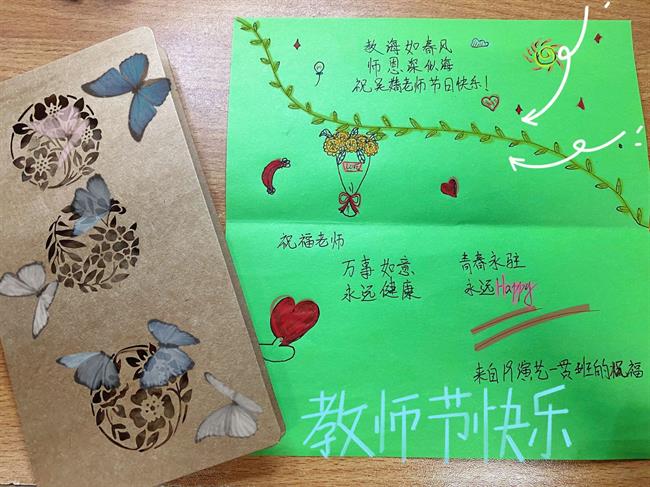 教海如春风
师恩深似海
祝吴婧老师节日快乐!
LOVE
祝福老师
万事如意
永远健康
青春永驻
永远Happy
来自19演艺一贯班的祝福
教师节快乐